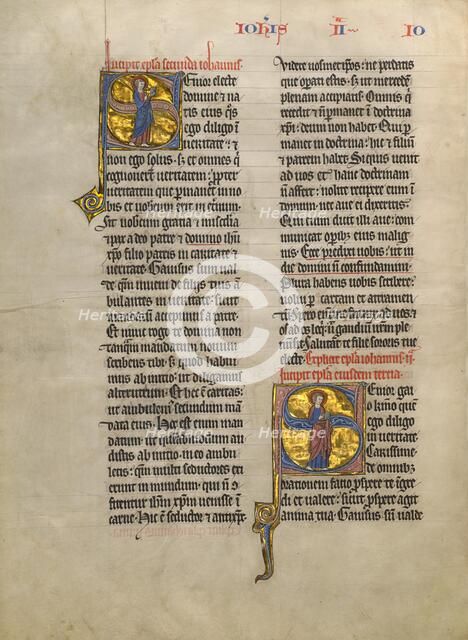 IOHIS II IO
Incipit epla secunda iohannis.
Senior electe
domine & na
tis eius qs
ego diligo in
ueritate. &
non ego solus. sz et omnes q
cognouerunt ueritatem. ppter
ueritatem que pmanet in no
bis et uobiscum erit in eternum.
Sit uobiscum gratia & misedia
& pax a deo patre &
xpo filio patris in caritate &
ueritate. Gauisus sum ual
de qm inueni de filiis tuis am
bulantes in ueritate. sicut
mandatum accepimus a patre.
Et nunc rogo te domina non
tanqm mandatum nouum
scribens tibi. sz quod habui
mus ab initio. ut diligamus
alterutrum. Et hec est caritas.
ut ambulem secundum man
data eius. Hoc est mandatum
ut quemadmodum audistis
ab initio. in eo ambu
letis. qm multi seductores exi
erunt in mundum. qui non
fitentur ihm xpm uenisse in
carne. Hic est seductor & antixps.
Videte uosmetipsos. ne perdatis
que operati estis. sz ut mercedem
plenam accipiatis. Omnis q
recedit & non pmanet in doctrina
xpi. deum non habet. Qui p
manet in doctrina. hic & filium
& patrem habet. Si quis uenit
ad uos et hanc doctrinam
non affert. nolite recipere eum in
domum. nec aue ei dixeritis.
Qui enim dicit illi aue. com
municat opibus eius malig
nis. Ecce predixi uobis. ut in
die domini non confundamini.
Plura habens uobis scribere.
nolui p cartam et atramen
tum. Spero enim me futurum ad uos &
os ad os loqui. ut gaudium uestrum ple
num sit. Salutant te filii sororis tue
electe. Explicit epla iohannis ii.
Incipit epla eiusdem tercia.
Senior gai
o kmo que
ego diligo
in ueritate.
Carissime
de omnibz
orationem facio pspere te ingre
di et ualere. sicut pspere agit
anima tua. Gauisus sum ualde
Heritage